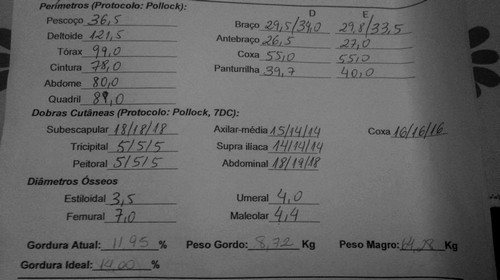 Perímetros (Protocolo: Pollock):
D E
Pescoço 36,5 Braço 29,5/34,0 29,8/33,5
Deltoide 121,5 Antebraço 26,5 27,0
Tórax 99,0 Coxa 55,0 55,0
Cintura 78,0 Panturrilha 39,7 40,0
Abdome 80,0
Quadril 89,0
Dobras Cutâneas (Protocolo: Pollock, 7DC):
Subescapular 18/18/18 Axilar-média 15/14/14 Coxa 16/16/16
Tricipital 5/5/5 Supra ilíaca 14/14/14
Peitoral 5/5/5 Abdominal 18/19/18
Diâmetros Ósseos
Estiloidal 3,5 Umeral 4,0
Femural 7,0 Maleolar 4,4
Gordura Atual: 11.95 % Peso Gordo: 8,72 Kg Peso Magro: 64,28 Kg
Gordura Ideal: 14,00 %